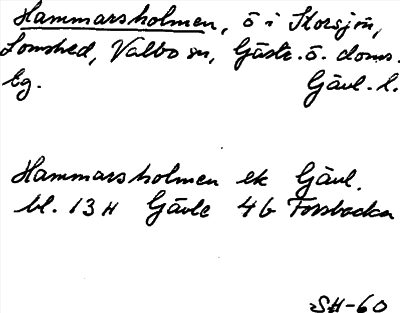 Hammarsholmen, ö i Storsjön,
Lomshed, Valbo sn, Gästr. ö. doms.
lg. Gävl. l.
Hammarsholmen ek Gävl.
bl. 13H Gävle 4b Forsbacka
SH-60